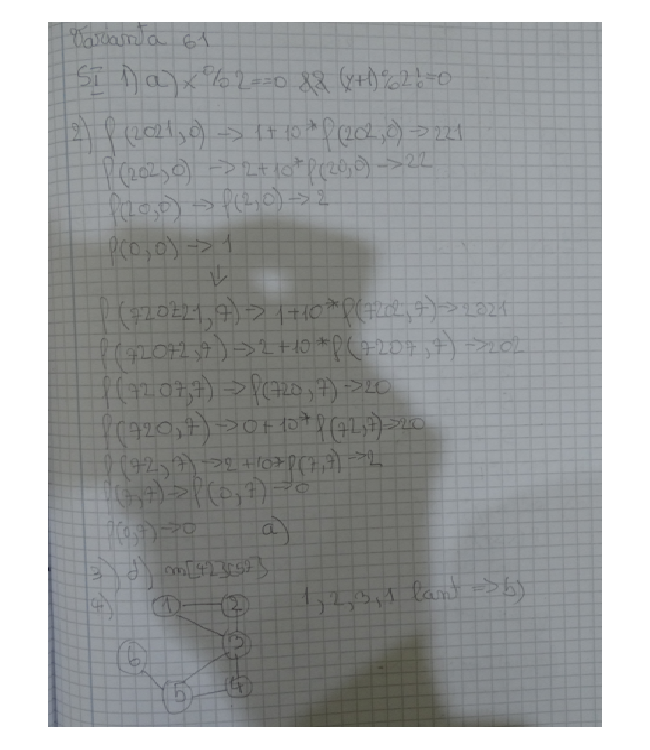 Varianta 61
SI 1) a) x%2==0 && (x+1)%2!=0
2) f(2021,0) -> 1+10*f(202,0) -> 221
f(202,0) -> 2+10*f(20,0) -> 22
f(20,0) -> f(2,0) -> 2
f(0,0) -> 1
↓
f(720721,7) -> 1+10*f(7202,7) -> 2021
f(72072,7) -> 2+10*f(7207,7) -> 202
f(7207,7) -> f(720,7) -> 20
f(720,7) -> 0+10*f(72,7) -> 20
f(72,7) -> 2+10*f(7,7) -> 2
f(7,7) -> f(0,7) -> 0
f(0,7) -> 0 a)
3) d)
4) 1 2 1,2,3,1 lant => b)
3
6
5 4